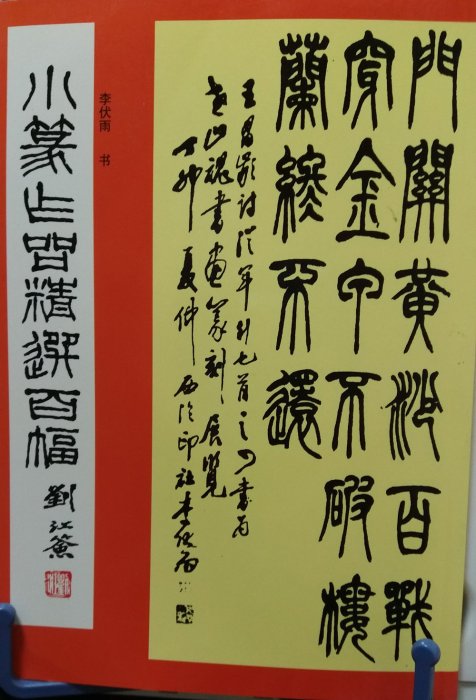 門關黃沙百戰
穿金甲不破樓
蘭終不還
王昌齡詩從軍行七首之四書為
黃山魂書畫篆刻展覽
丁卯夏仲西泠印社李伏雨
李伏雨 书
小篆作品精選百幅
劉江簽